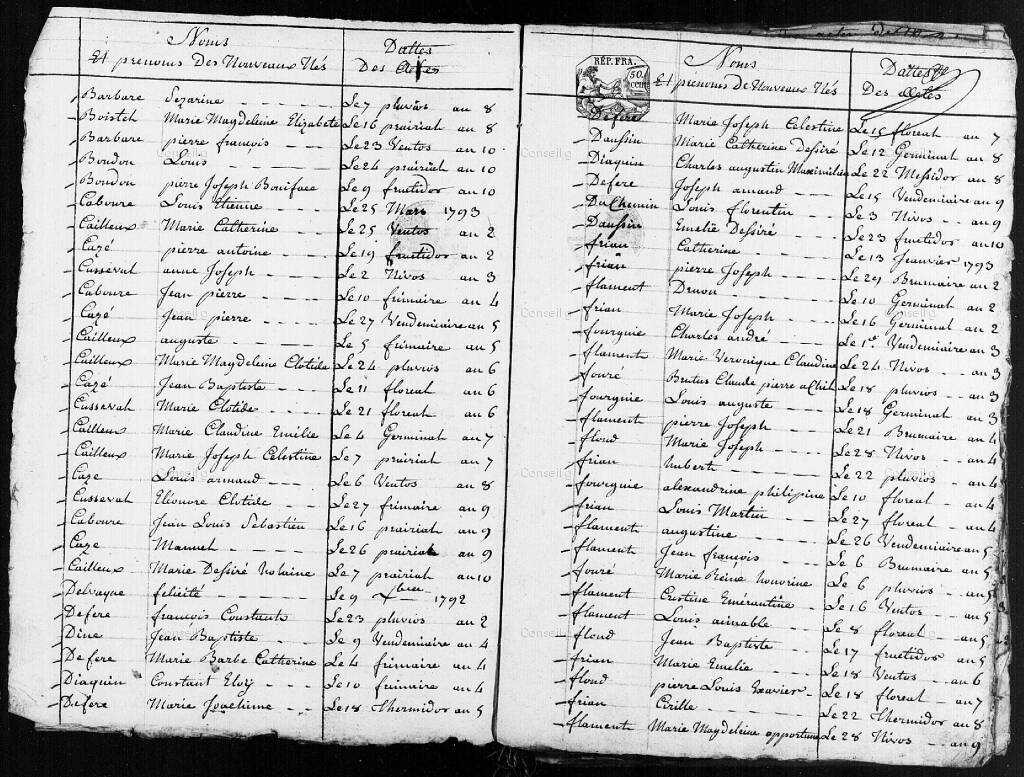 Noms Dattes
Et prenoms Des Nouveaux Nés Des Actes
Barbare Sezarine Le 7 pluvios an 8
Boistel Marie Magdeleine Elizabete Le 16 prairial an 8
Barbare pierre françois Le 23 Ventos an 10
Boudon Louis Le 24 prairial an 10
Boudon pierre Joseph Boniface Le 9 frutidor an 10
Caboure Louis Etienne Le 25 Mars 1793
Cailleux Marie Catherine Le 25 Ventos an 2
Cazé pierre antoine Le 19 fructidor an 2
Casseval anne Joseph Le 2 Nivos an 3
Caboure Jean pierre Le 10 frimaire an 4
Cazé Jean pierre Le 27 Vendemiaire an 5
Cailleux auguste Le 5 frimaire an 5
Cailleux Marie Magdeleine Clotide Le 24 pluvios an 6
Cazé Jean Baptiste Le 11 floreal an 6
Casseval Marie Clotide Le 21 floreal an 6
Cailleux Marie Claudine Emilie Le 4 Germinal an 7
Cailleux Marie Joseph Celestine Le 7 prairial an 7
Caze Louis armand Le 6 Ventos an 8
Casseval Eleonore Clotide Le 27 frimaire an 9
Caboure Jean Louis Sebastien Le 16 prairial an 9
Caze Manuel Le 26 prairial an 9
Cailleux Marie Dessiré Le 7 prairial an 10
Delvaque felicité Le 9 Xbre 1792
Defere françois Constant Le 23 pluvios an 2
Dine Jean Baptiste Le 9 Vendemiaire an 4
Defere Marie Barbe Catherine Le 4 frimaire an 4
Diaquin Constant Eloÿ Le 10 frimaire an 4
Defere Marie Joachime Le 18 thermidor an 5
RÉP. FRA.
50 cent
Noms Dattes
Et prenoms De Nouveaux Nés Des actes
Defere Marie Joseph Celestine Le 15 floreal an 7
Daussin Marie Catherine Dessiré Le 12 Germinal an 8
Diaquin Charles augustin Maximilien Le 22 Messidor an 8
Defere Joseph armand Le 15 Vendemiaire an 9
Du Chemin Louis florentin Le 3 Nivos an 9
Daussin Emelie Dessiré Le 23 fructidos an 10
frian Catherine Le 13 Jeanvier 1793
frian pierre Joseph Le 29 Brumaire an 2
flament Druon Le 10 Germinal an 2
frian Marie Joseph Le 16 Germinal an 2
fourquie Charles andré Le 1er Vendemiaire an 3
flament Marie Veronique Claudine Le 24 Nivos an 3
fouré Brutus Claude pierre Le 18 pluvios an 3
fourquie Louis auguste Le 18 Germinal an 3
flament pierre Joseph Le 21 Brumaire an 4
floud Marie Joseph Le 28 Nivos an 4
frian hubert Le 22 pluvios an 4
fourquie alexandrine philipine Le 10 floreal an 4
frian Louis Martin Le 27 floreal an 4
flament augustine Le 26 Vendemiaire an 5
flament Jean françois Le 6 Brumaire an 5
fouré Marie Reine honorine Le 6 pluvios an 5
flament Cristine Emérantine Le 16 Ventos an 5
flament Louis aimable Le 8 floreal an 5
floud Jean Baptiste Le 17 fructidos an 5
frian Marie Emelie Le 18 Ventos an 6
floud pierre Louis Xavier Le 18 floreal an 7
frian Cirille Le 22 thermidos an 8
flament Marie Magdeleine opportune Le 28 Nivos an 9